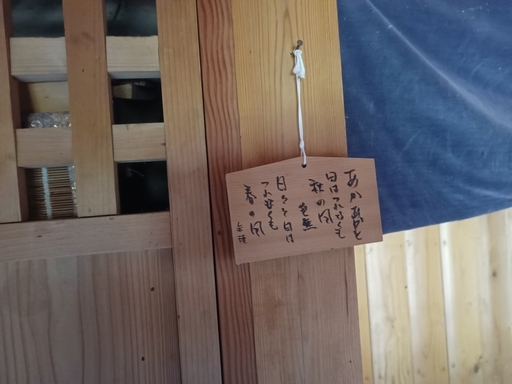 あかあかと
日はつれなくも
秋の風
芭蕉
日々と日は
つれなくも
春の風